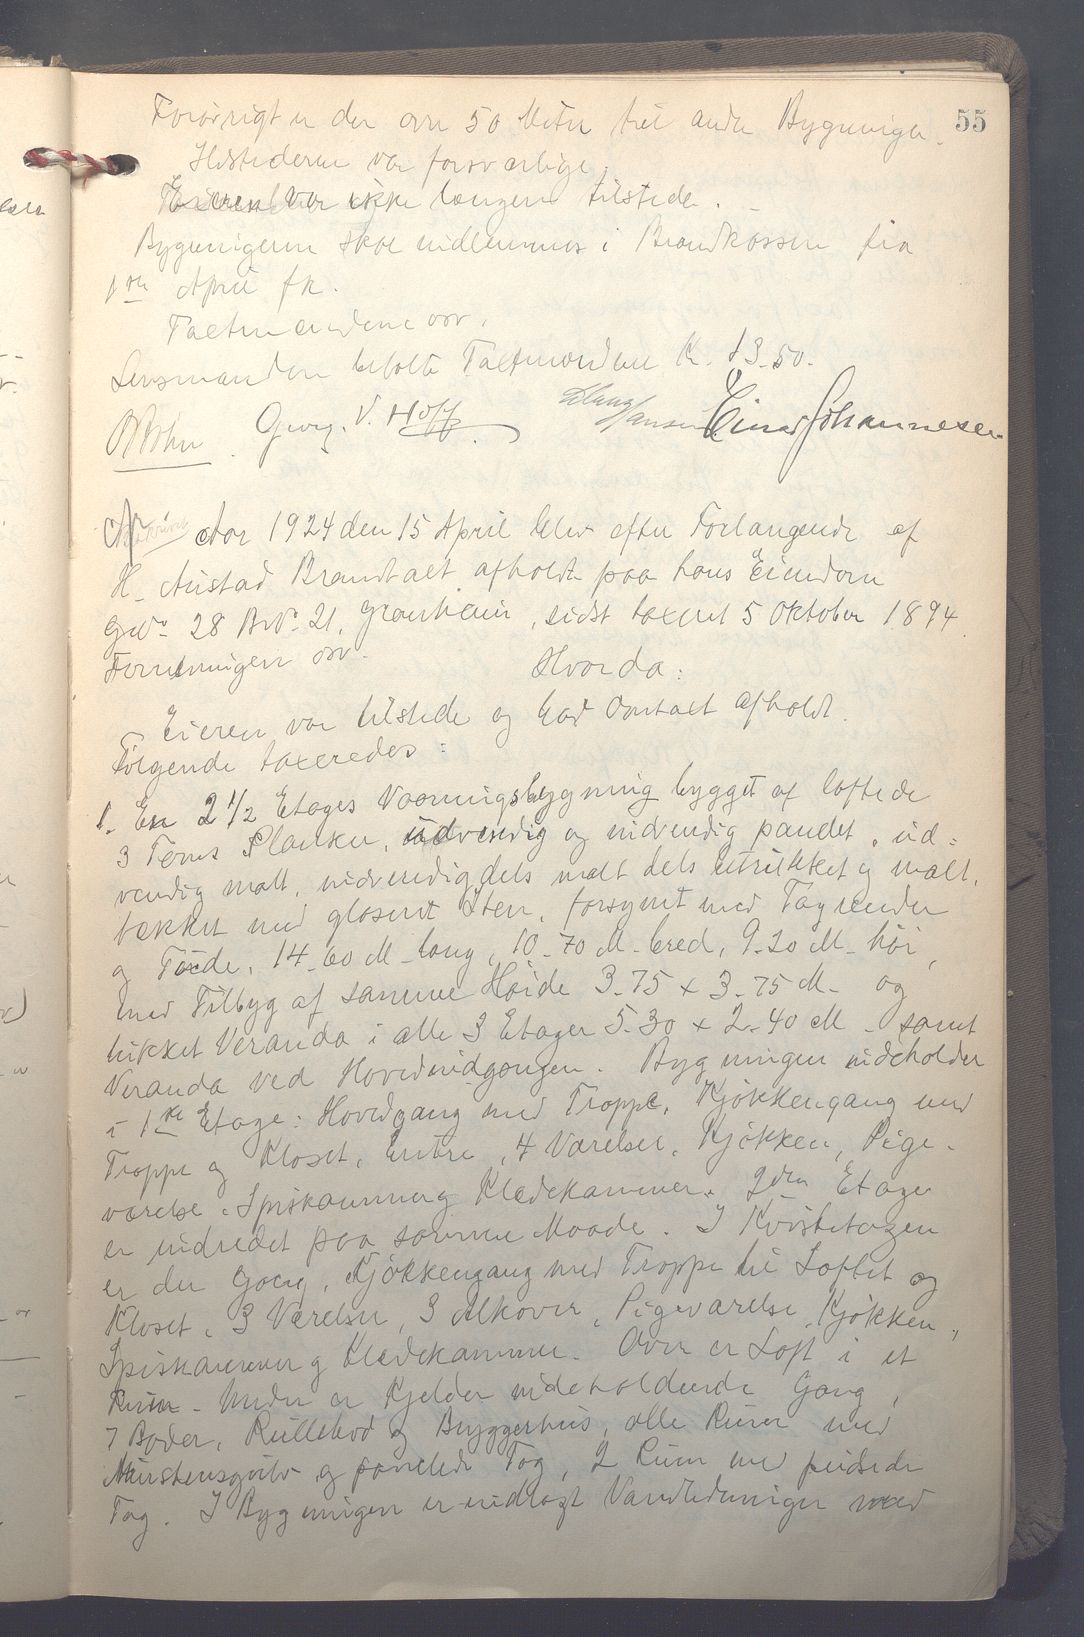 55
Forøvrigt er der over 50 Meter til andre Bygninger.
Ildstederne var forsvarlige.
Eieren var ikke længere tilstede. –
Bygningerne skal indlemmes i Brandkassen fra
1ste April fk.
Taxtmændene osv.
Lensmanden betalte Taxtmændene Kr. 13.50.
Georg. V. Hoff Hansen Einar Johannesen
Aar 1924 den 15 April blev efter Forlangende af
H. Austad Brandtaxt afholdt paa hans Eiendom
GNo 28 BNo 21, Granheim, sidst taxeret 5 Oktober 1894.
Forretningen osv. Hvorda:
Eieren var tilstede og bad Omtaxt afholdt.
Følgende taxeredes:
1. En 2 1/2 Etages Vaaningsbygning bygget af loftede
3 Toms Planker, udvendig og indvendig panelet, ud=
vendig malt, indvendig dels malt dels betrukket og malt,
tækket med glaseret Sten, forsynet med Tagrender
og 14.60 M. lang, 10.70 M. bred, 9.20 M. høi,
med Tilbyg af samme Høide 3.75 x 3.75 M. og
lukket Veranda i alle 3 Etager 5.30 x 2.40 M. samt
Veranda ved Hovedindgangen. Bygningen indeholder
i 1ste Etage: Hovedgang med Trappe, Kjøkkengang med
Trappe og Kloset, Entre, 4 Værelser, Kjøkken, Pige-
værelse, Spiskammer og Klædekammer. 2den Etage
er indredet paa samme Maade. I Kvistetagen
er der Gang, Kjøkkengang med Trappe til Loftet og
Kloset, 3 Værelser, 3 Alkover, Pigeværelse, Kjøkken,
Spiskammer og Klædekammer. Over er Loft i et
Rum. Under er Kjelder indeholdende Gang,
7 Boder, Rullebod og Bryggerhus, alle Rum med
Murstensgulv og panelede Tag, 2 Rum med pudsede
Tag. I Bygningen er indlagt Vandledninger med